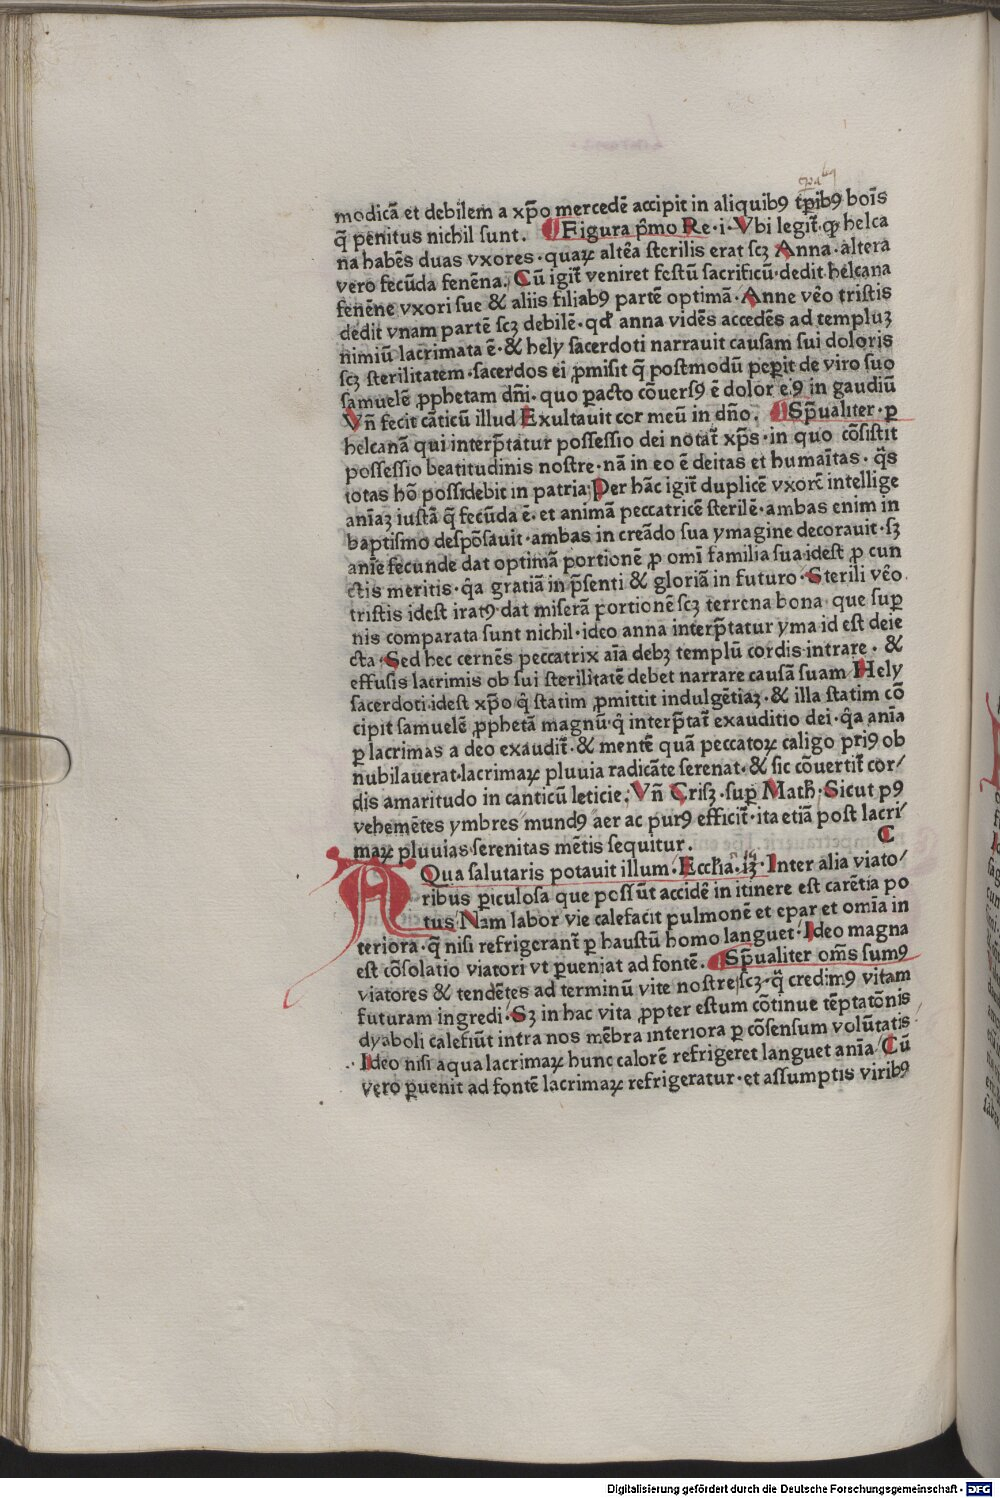 modicā et debilem a xp̄o mercedē accipit in aliquibꝰ tp̄ibꝰ bōis
q̄ penitus nichil sunt. ¶ Figura p̄mo Re·i·Vbi legit̄ ꝙ helca
na habēs duas vxores·quaꝝ altēa sterilis erat scꝫ Anna·altera
vero fecūda fenēna. Cū igit̄ veniret festū sacrificū·dedit helcana
fenēne vxori sue & aliis filiabꝰ partē optimā·Anne vēo tristis
dedit vnam partē scꝫ debilē·qd̄ anna vidēs accedēs ad templuꝫ
nimiū lacrimata ē·& hely sacerdoti narrauit causam sui doloris
scꝫ sterilitatem·sacerdos ei ꝓmisit q̄ postmodū peperit de viro suo
samuelē ꝓphetam dn̄i·quo pacto cōuersꝰ ē dolor eꝰ in gaudiū
Vn̄ fecit cāticū illud Exultauit cor meū in dn̄o. ¶ Sp̄ualiter·ꝑ
helcanā qui interp̄tatur possessio dei notat̄ xp̄s·in quo cōsistit
possessio beatitudinis nostre·nā in eo ē deitas et humaītas·q̄s
totas hō possidebit in patria Per hāc igit̄ duplicē vxorē intellige
anīaꝫ iustā q̄ fecūda ē·et animā peccatricē sterilē·ambas enim in
baptismo despōsauit·ambas in creādo sua ymagine decorauit·sꝫ
anīe fecunde dat optimā portionē ꝓ omī familia sua idest ꝓ cun
ctis meritis·q̄a gratiā in p̄senti & gloriā in futuro·Sterili vēo
tristis idest iratꝰ dat miserā portionē scꝫ terrena bona que suꝑ
nis comparata sunt nichil·ideo anna interp̄tatur yma id est deie
cta·Sed hec cernēs peccatrix aīa debꝫ templū cordis intrare·&
effusis lacrimis ob sui sterilitatē debet narrare causā suam Hely
sacerdoti idest xp̄o q̄ statim ꝓmittit indulgētiaꝫ·& illa statim cō
cipit samuelē ꝓphetā magnū·q̄ interp̄tat̄ exauditio dei·q̄a anīa
ꝑ lacrimas a deo exaudit̄·& mentē quā peccatoꝝ caligo priꝰ ob
nubilauerat·lacrimaꝝ pluuia radicāte serenat·& sic cōuertit̄ cor/
dis amaritudo in canticū leticie. Vn̄ Crisꝫ·suꝑ Math̄·Sicut pꝰ
vehemētes ymbres mundꝰ aer ac purꝰ efficit̄·ita etiā post lacri/
maꝝ pluuias serenitas mētis sequitur. C
AQua salutaris potauit illum. Eccħa·iꝫ·Inter alia viato/
ribus ꝑiculosa que possūt accidē in itinere est carētia po
tus Nam labor vie calefacit pulmonē et epar et omīa in
teriora·q̄ nisi refrigerant̄ ꝑ haustū homo languet·Ideo magna
est cōsolatio viatori vt ꝑueniat ad fontē. ¶ Sp̄ualiter om̄s sumꝰ
viatores & tendētes ad terminū vite nostre scꝫ·q̄ credimꝰ vitam
futuram ingredi·Sꝫ in hac vita ꝓpter estum cōtinue tēptatōnis
dyaboli calefiūt intra nos mēbra interiora ꝑ cōsensum volūtatis
·Ideo nisi aqua lacrimaꝝ hunc calorē refrigeret languet anīa Cū
vero ꝑuenit ad fontē lacrimaꝝ refrigeratur·et assumptis viribꝰ
Digitalisierung gefördert durch die Deutsche Forschungsgemeinschaft - DFG